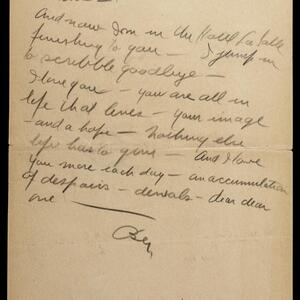 And now I'm in the Hotel La Salle
finishing to you — I jump in
a scribble goodbye —
I love you — you are all in
life that lives — your image
— and a hope — Nothing else
life has to give — And I love
you more each day — an accumulation
of despairs — denials — dear dear
one —
Ben